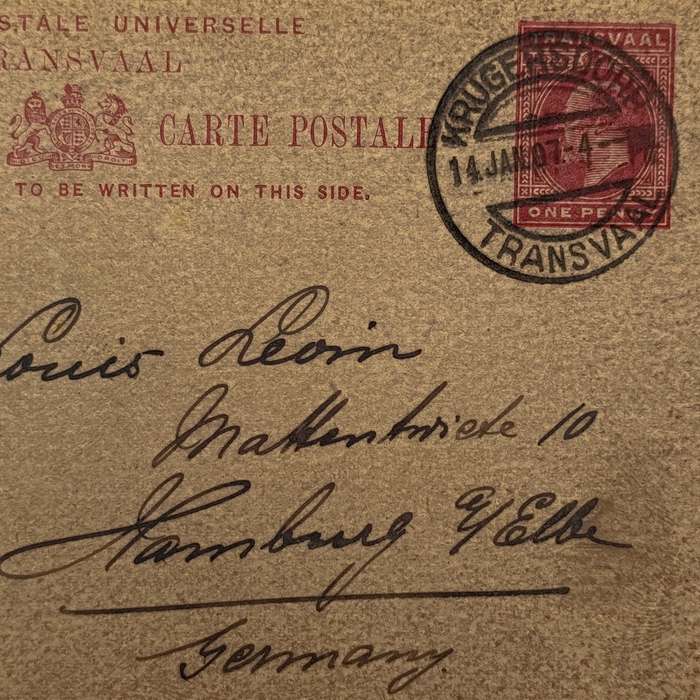 STALE UNIVERSELLE
RANSVAAL
CARTE POSTALE
TO BE WRITTEN ON THIS SIDE.
TRANSVAAL
ONE PENNY
KRUGERSDORP
14 JAN 07 · 4 –
TRANSVAAL
Louis Levin
Mattentwiete 10
Hamburg a/Elbe
Germany.